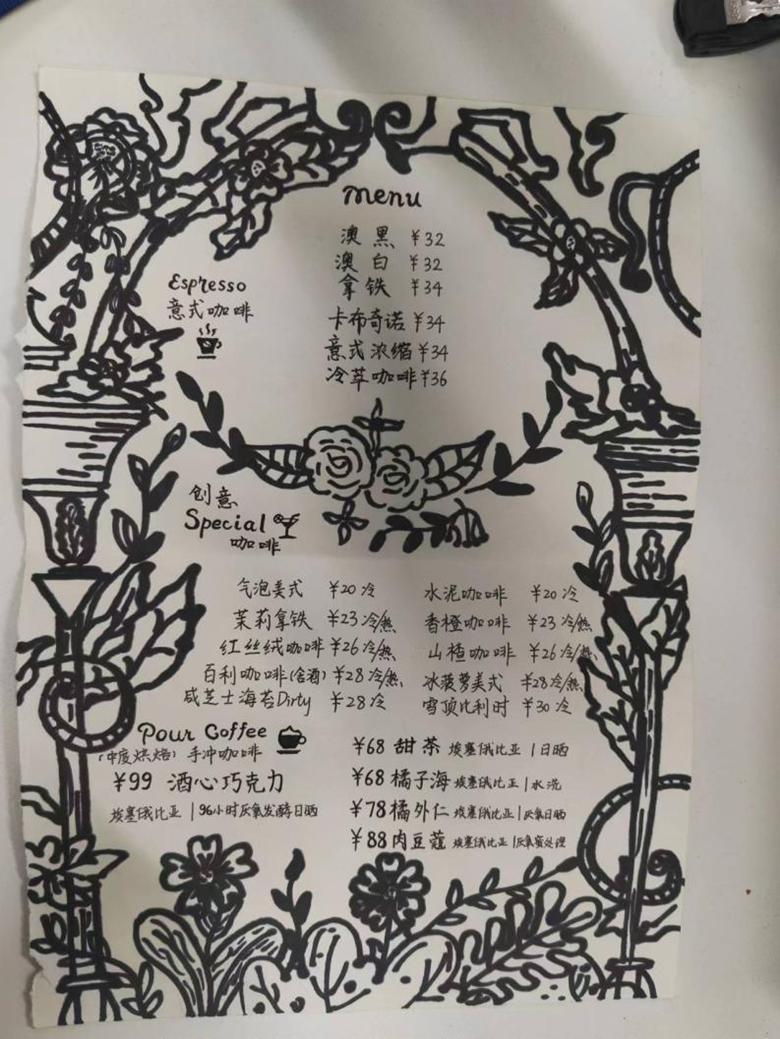 menu
澳黑 ¥32
澳白 ¥32
拿铁 ¥34
Espresso
意式咖啡
卡布奇诺 ¥34
意式浓缩 ¥34
冷萃咖啡 ¥36
创意
Special
咖啡
气泡美式 ¥20 冷
水泥咖啡 ¥20 冷
茉莉拿铁 ¥23 冷/热
香橙咖啡 ¥23 冷/热
红丝绒咖啡 ¥26 冷/热
山楂咖啡 ¥26 冷/热
百利咖啡(含酒) ¥28 冷/热
冰菠萝美式 ¥28 冷/热
咸芝士海苔Dirty ¥28 冷
雪顶比利时 ¥30 冷
Pour Coffee
(中度烘焙) 手冲咖啡
¥99 酒心巧克力
埃塞俄比亚 | 96小时厌氧发酵日晒
¥68 甜茶 埃塞俄比亚 | 日晒
¥68 橘子海 埃塞俄比亚 | 水洗
¥78 橘外仁 埃塞俄比亚 | 厌氧日晒
¥88 肉豆蔻 埃塞俄比亚 | 厌氧蜜处理